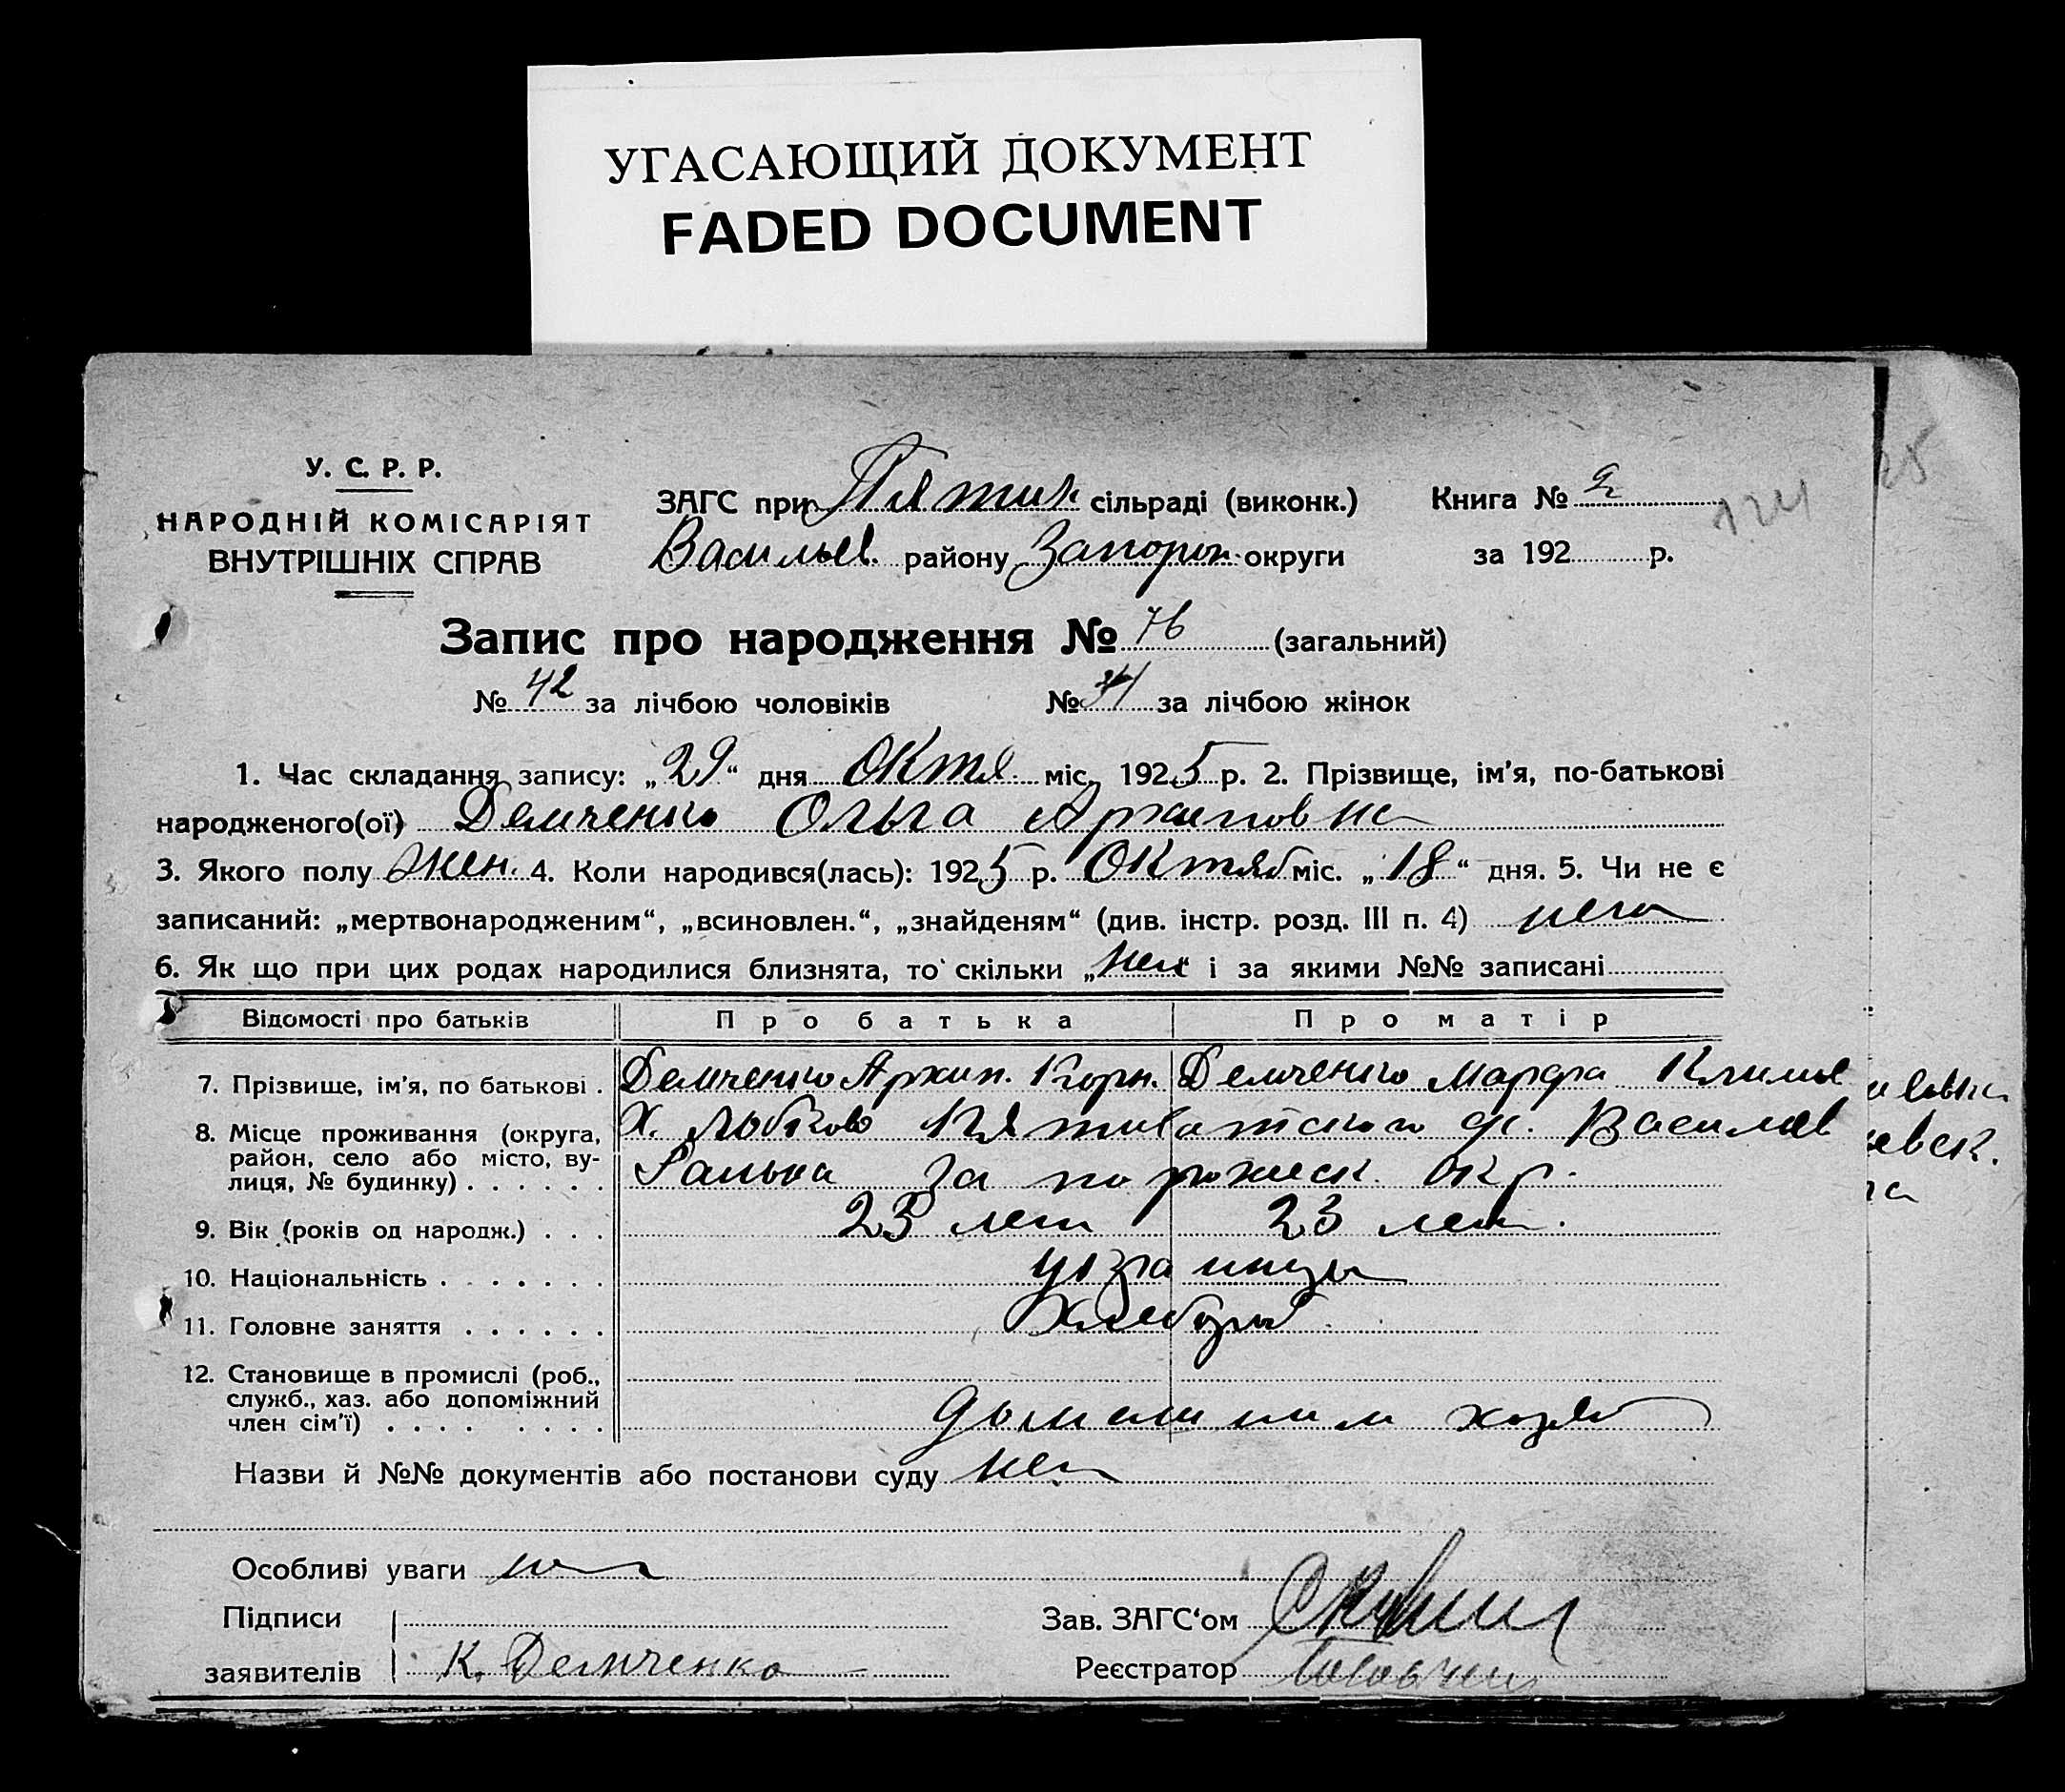 УГАСАЮЩИЙ ДОКУМЕНТ
FADED DOCUMENT
У. С. Р. Р.
НАРОДНІЙ КОМІСАРІЯТ
ВНУТРІШНІХ СПРАВ
ЗАГС при Пятих сільраді (виконк.) Книга № 2
Васильев. району Запорож. округи за 192 р.
124
25
Запис про народження № 76 (загальний)
№ 42 за лічбою чоловіків № 34 за лічбою жінок
1. Час складання запису: „29“ дня Октя міс. 1925 р. 2. Прізвище, ім'я, по-батькові
народженого(ої) Демченко Ольга Архиповна
3. Якого полу Жен. 4. Коли народився(лась): 1925 р. Октяб міс. „18“ дня. 5. Чи не є
записаний: „мертвонародженим“, „всиновлен.“, „знайденям“ (див. інстр. розд. III п. 4) нет
6. Як що при цих родах народилися близнята, то скільки „нет“ і за якими №№ записані
Відомості про батьків Про батька Про матір
7. Прізвище, ім'я, по батькові . Демченко Архип. Корн. Демченко Марфа Климов
8. Місце проживання (округа, район, село або місто, вулиця, № будинку) . . . . . . Х. с. Василев
Запорожск. Окр.
евск.
9. Вік (років од народж.) . . . 23 лет 23 лет.
10. Національність . . . . . . . украинцы
11. Головне заняття . . . . . . Хлебороб
12. Становище в промислі (роб.,
служб., хаз. або допоміжний
член сім'ї) . . . . . . . . хозяй
Назви й №№ документів або постанови суду нет
Особливі уваги нет
Підписи Зав. ЗАГС'ом
заявителів К. Демченко Реєстратор